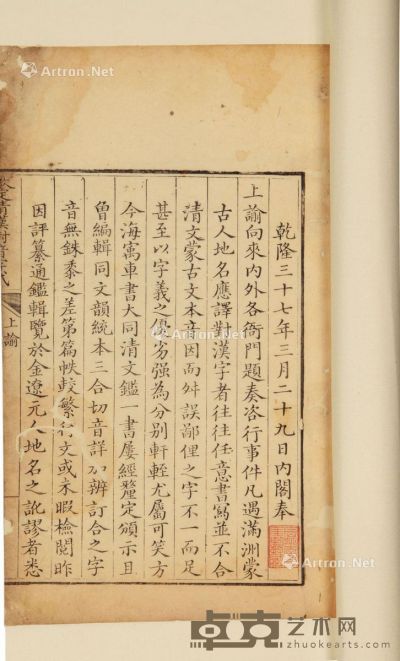 Artron.Net
Artron.Net
乾隆三十七年三月二十九日內閣奉
上諭向來內外各衙門題奏咨行事件凡遇滿洲蒙
古人地名應譯對漢字者往往任意書寫並不合
清文蒙古文本音因而舛誤鄙俚之字不一而足
甚至以字義之優劣强為分別軒輊尤屬可笑方
今海㝢車書大同清文鑑一書屢經釐定頒示且
曾編輯同文韻統本三合切音詳加辨訂合之字
音無銖黍之差第篇帙較繁行文或未暇檢閱昨
因評纂通鑑輯覽於金遼元人地名之訛謬者悉
欽定清漢對音字式
上諭
Artron.Net
Artron.Net
卓克艺术网
zhuokearts.com